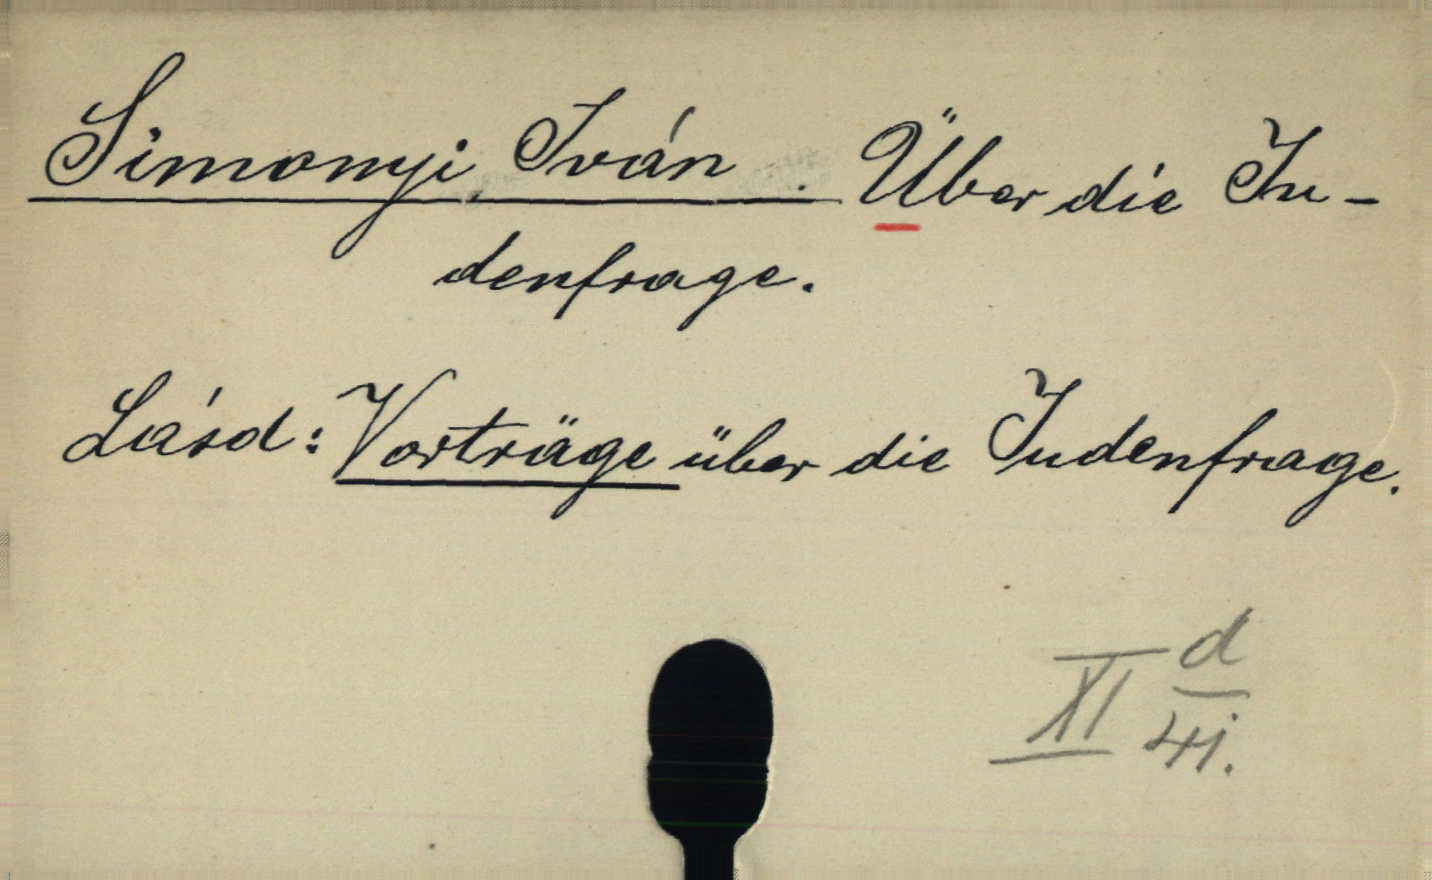 Simonyi, Iván. Über die Ju-
denfrage.
Lásd: Vorträge über die Judenfrage.
XI d/4j.